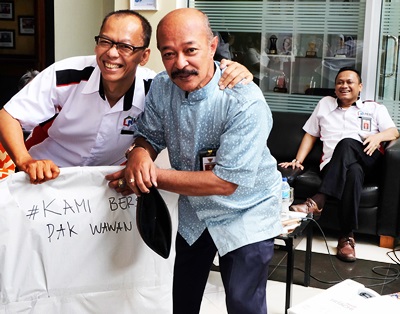 #KAMI BER
PAK WAWAN